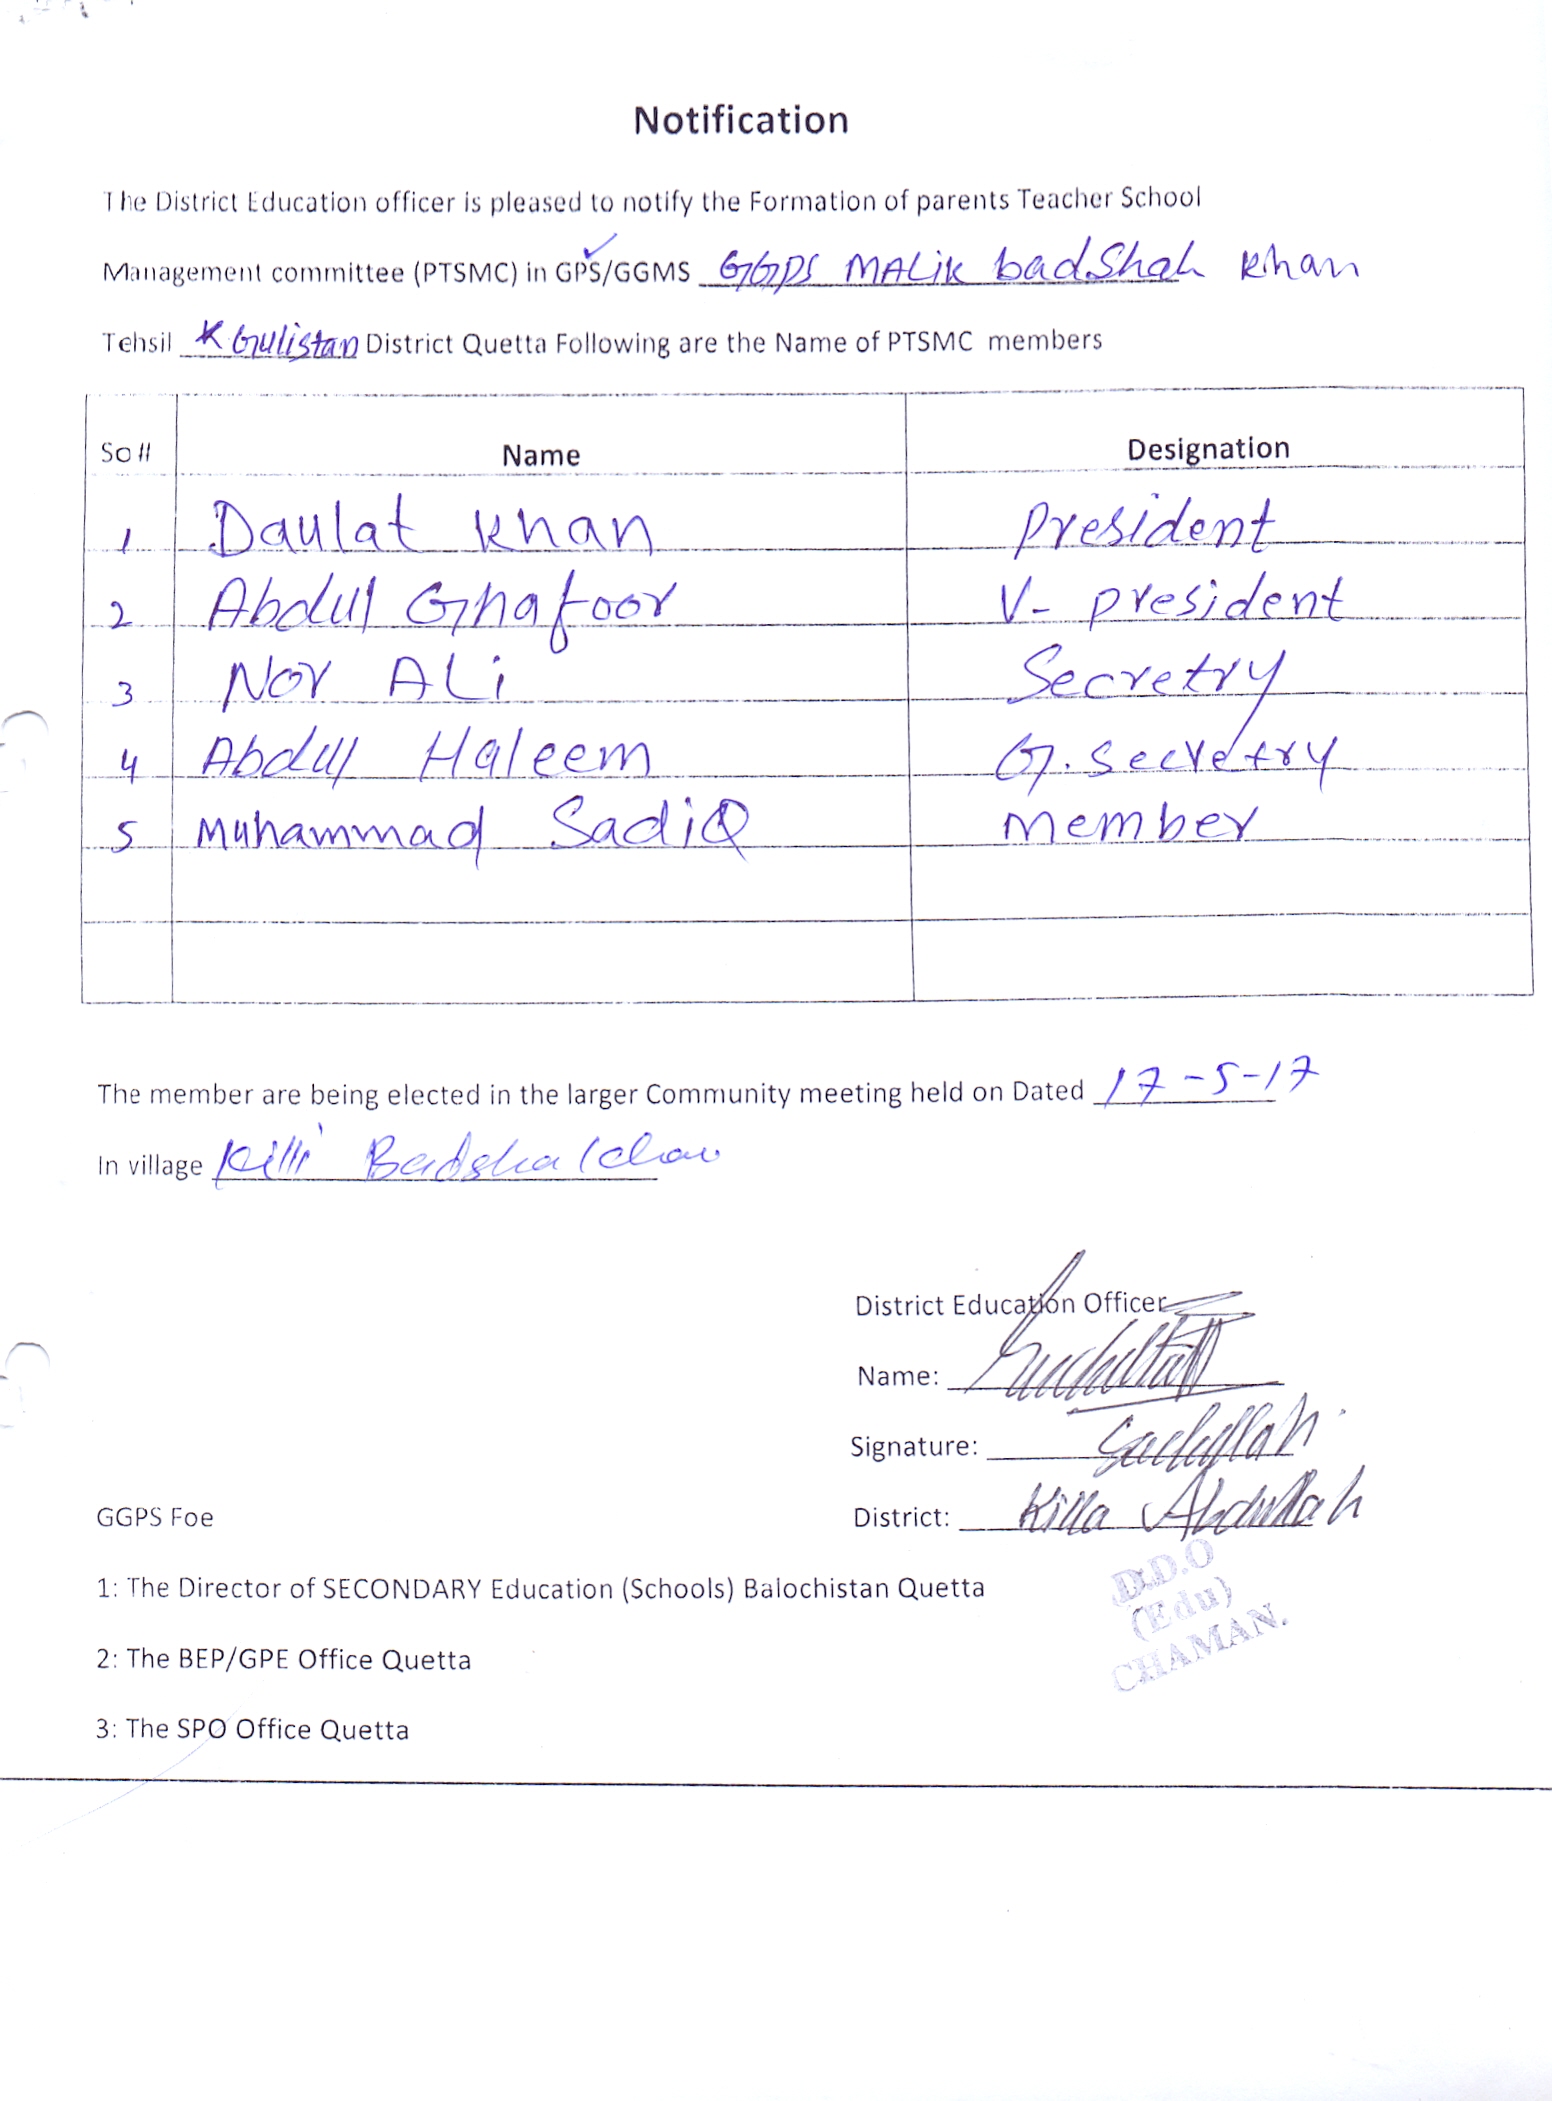 Notification
The District Education officer is pleased to notify the Formation of parents Teacher School
Management committee (PTSMC) in GPS/GGMS GGPS MALik badShah Khan
Tehsil K Gulistan District Quetta Following are the Name of PTSMC members
So # Name Designation
1 Daulat Khan president
2 Abdul Ghafoor V- president
3 Nor ALi Secretry
4 Abdul Haleem G. Secretry
5 Muhammad SadiQ member
The member are being elected in the larger Community meeting held on Dated 17-5-17
In village Killi Badsha Khan
District Education Officer
Name:
Signature: Sadullah
District: Killa Abdullah
GGPS Foe
D.D.O
(Edu)
CHAMAN.
1: The Director of SECONDARY Education (Schools) Balochistan Quetta
2: The BEP/GPE Office Quetta
3: The SPO Office Quetta